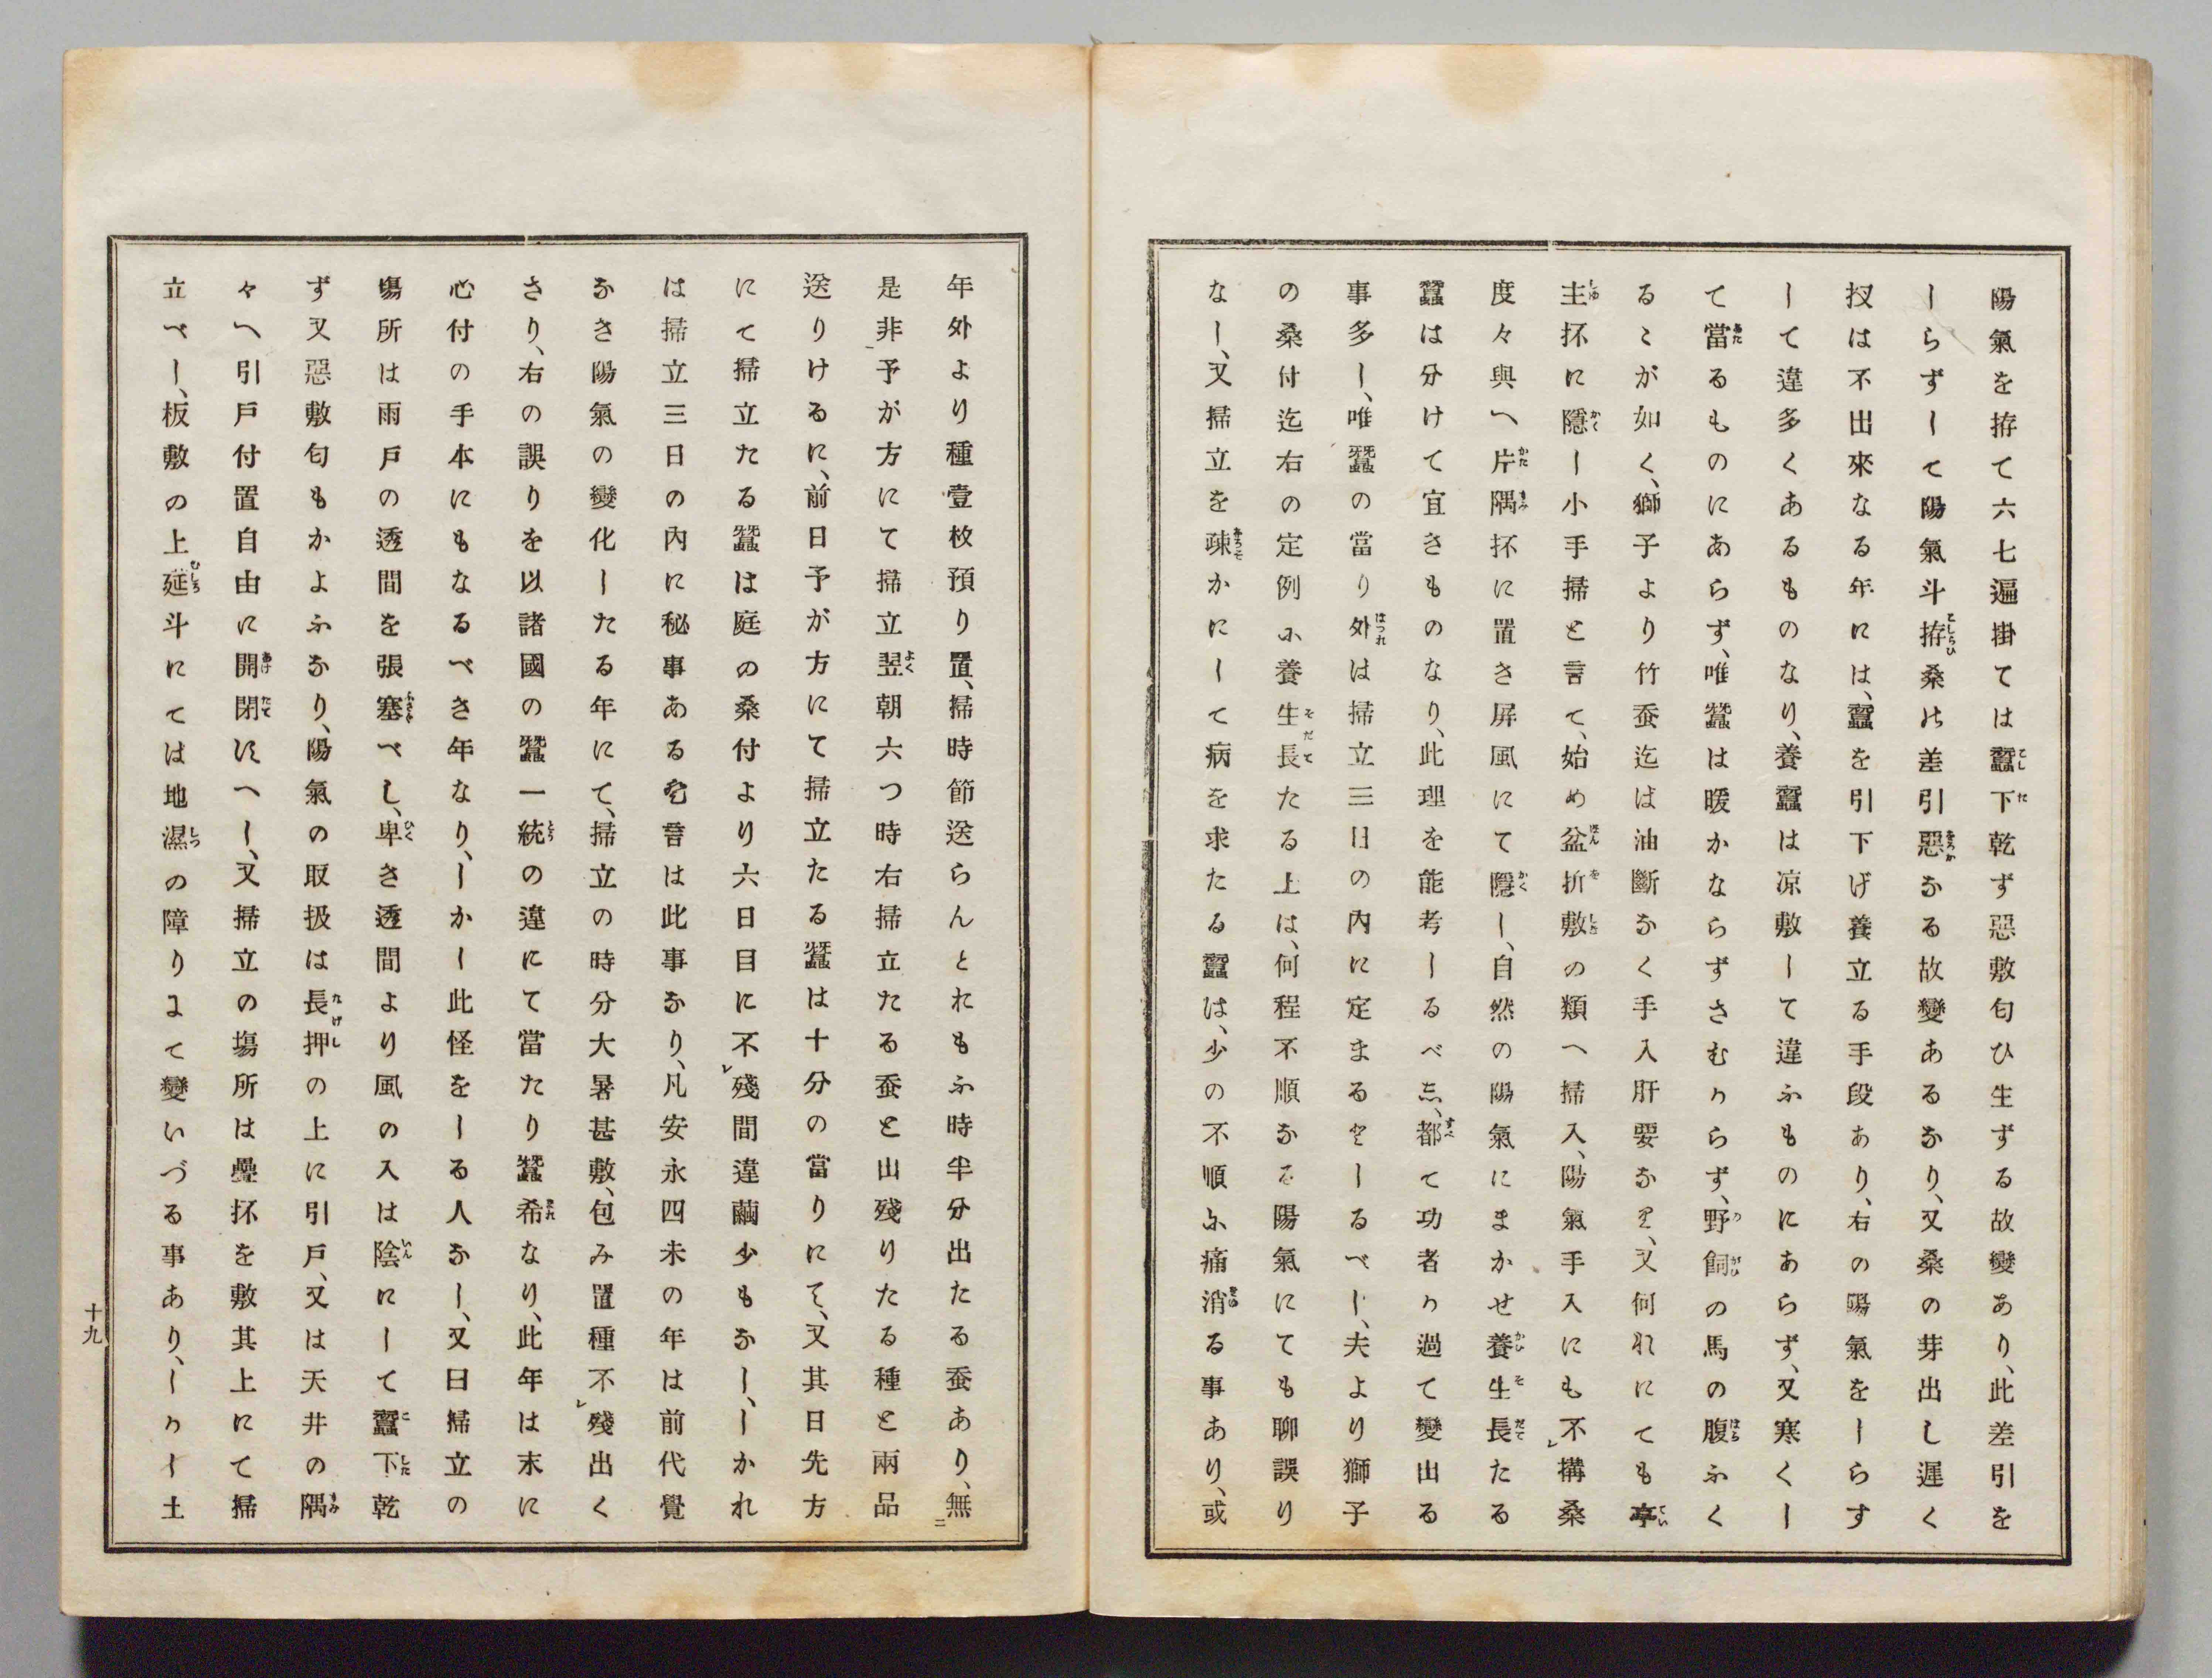 陽氣を拵て六七遍掛ては蠶下乾ず惡敷匂ひ生ずる故變あり、此差引を
しらずして陽氣斗拵桑の差引惡なる故變あるなり、又桑の芽出し遲く
扠は不出來なる年には、蠶を引下げ養立る手段あり、右の陽氣をしらす
して違多くあるものなり、養蠶は凉敷して違ふものにあらず、又寒くし
て當るものにあらず、唯蠶は暖かならずさむからず、野飼の馬の腹ふく
るゝが如く、獅子より竹蚕迄は油斷なく手入肝要なり、又何れにても亭
主抔に隱し小手掃と言て、始め盆折敷の類へ掃入、陽氣手入にも不構桑
度々與へ片隅抔に置き屏風にて隱し、自然の陽氣にまかせ養生長たる
蠶は分けて宜きものなり、此理を能考しるべし、都て功者か過て變出る
事多し、唯蠶の當り外は掃立三日の內に定まるとしるべし、夫より獅子
の桑付迄右の定例に養生長たる上は、何程不順なる陽氣にても聊誤り
なし、又掃立を疎かにして病を求たる蠶は、少の不順に痛消る事あり、或
年外より種壹枚預り置、掃時節送らんとれもふ時半分出たる蚕あり、無
是非予が方にて掃立翌朝六つ時右掃立たる蚕と出殘りたる種と兩品
送りけるに、前日予が方にて掃立たる蠶は十分の當りにて、又其日先方
にて掃立たる蠶は庭の桑付より六日目に不殘間違繭少もなし、しかれ
は掃立三日の內に秘事ある宅言は此事なり、凡安永四未の年は前代覺
なき陽氣の變化したる年にて、掃立の時分大暑甚敷、包み置種不殘出く
さり、右の誤りを以諸國の蠶一統の違にて當たり蠶希なり、此年は末に
心付の手本にもなるべき年なり、しかし此怪をしる人なし、又曰掃立の
塲所は雨戸の透間を張塞べし、卑き透間より風の入は陰にして蠶下乾
ず又惡敷匂もかよふなり、陽氣の取扱は長押の上に引戸、又は天井の隅
々へ引戸付置自由に開閉すへし、又掃立の塲所は疊抔を敷其上にて掃
立べし、板敷の上莚斗にては地濕の障りよて變いづる事あり、しかし土
十九